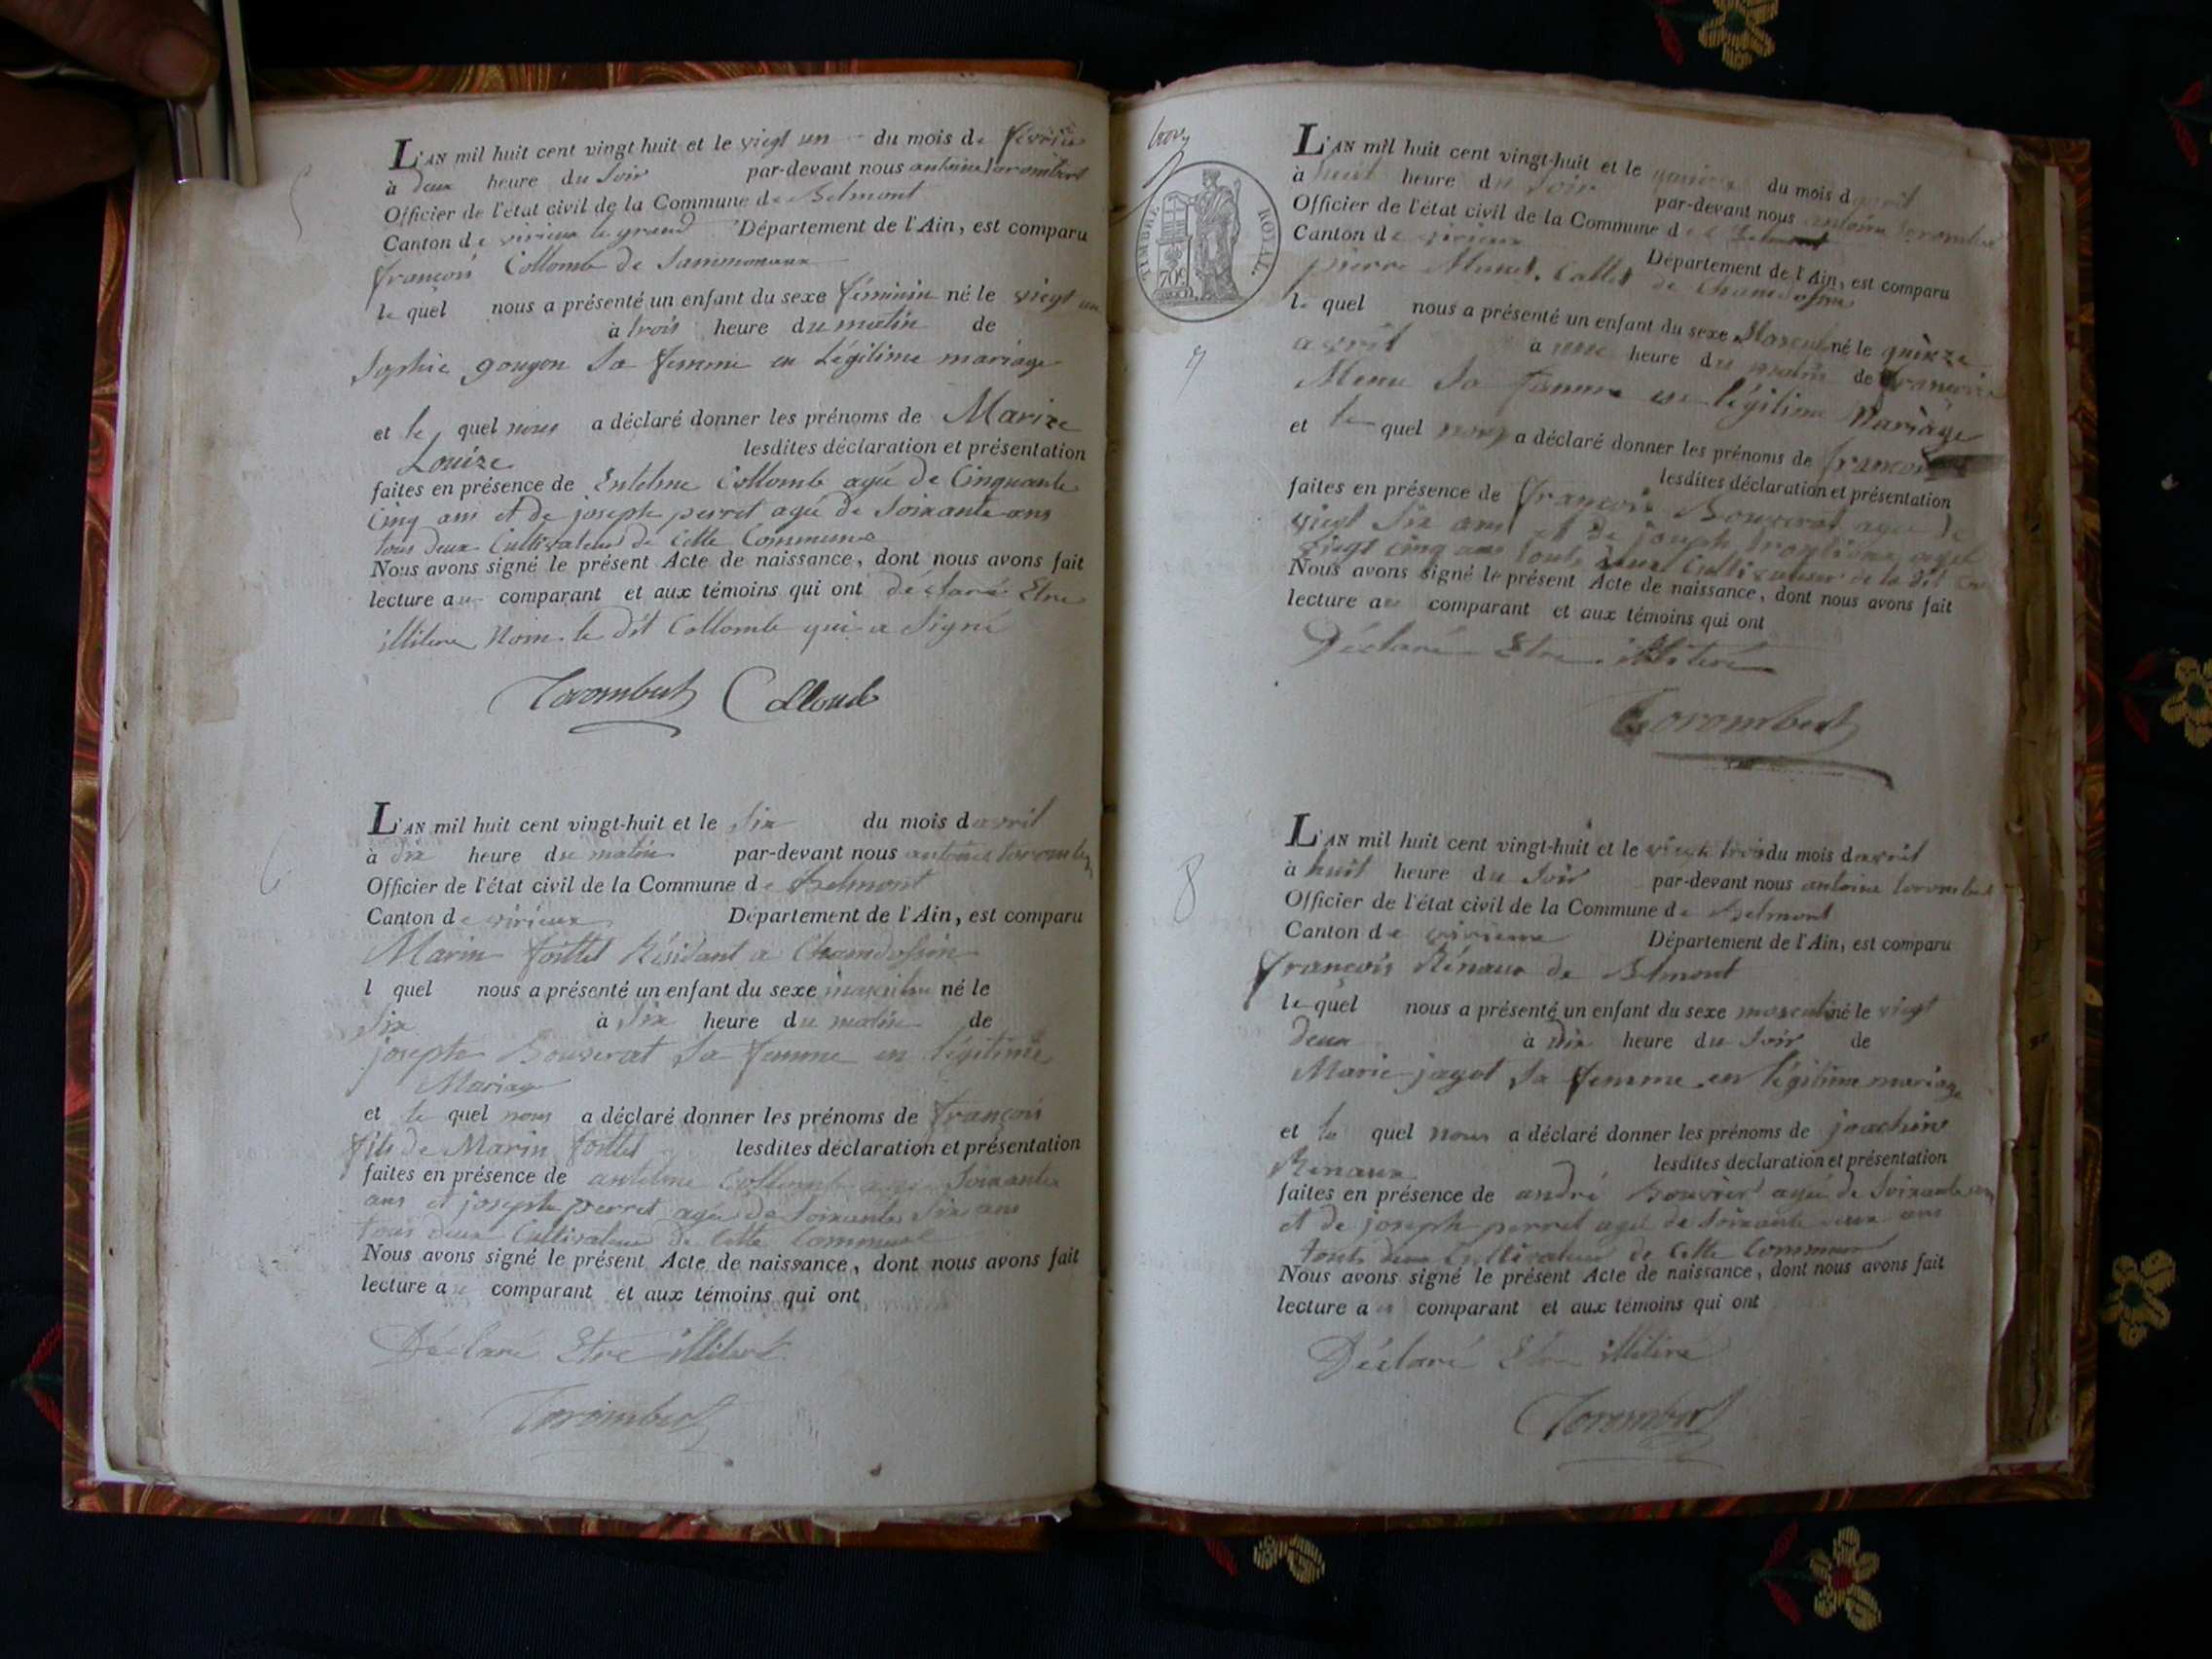 5
L'AN mil huit cent vingt huit et le vingt un du mois de février
à Deux heure du Soir par-devant nous antoine torombert
Officier de l'état civil de la Commune de Belmont
Canton de virieux le grand Département de l'Ain, est comparu
françois Collomb de Sammonaux
le quel nous a présenté un enfant du sexe féminin né le vingt un
à trois heure du matin de
Sophie gougon Sa femme en Légitime mariage
et le quel nous a déclaré donner les prénoms de Marize
Louize lesdites déclaration et présentation
faites en présence de Entelme Collomb agé de Cinquante
Cinq ans et de joseph perret agé de Soixante ans
tous Deux Cultivateurs de Cette Commune
Nous avons signé le présent Acte de naissance, dont nous avons fait
lecture au comparant et aux témoins qui ont déclaré Etre
illitere Nom le Dit Collomb qui a Signé
Torombert Collomb
6
L'AN mil huit cent vingt-huit et le Six du mois davril
à dix heure du matin par-devant nous antoine torombert
Officier de l'état civil de la Commune de Belmont
Canton de virieux Département de l'Ain, est comparu
Marin foillet Résidant a Chamdossin
l quel nous a présenté un enfant du sexe masculin né le
Six à Six heure du matin de
joseph Bouverat Sa femme en légitime
Mariage
et le quel nous a déclaré donner les prénoms de françois
fils de Marin foillet lesdites déclaration et présentation
faites en présence de antelme Collomb agé Soixante
ans et joseph perret agé de Soixante Six ans
tous deux Cultivateur de Cette Commune
Nous avons signé le présent Acte de naissance, dont nous avons fait
lecture a comparant et aux témoins qui ont
Déclaré Etre illiteré
Torombert
TIMBRE ROYAL
70c
7
L'AN mil huit cent vingt-huit et le du mois d avril
à huit heure du Soir par-devant nous antoine torombert
Officier de l'état civil de la Commune de Belmont
Canton de virieux Département de l'Ain, est comparu
pierre de Chamdossin
le quel nous a présenté un enfant du sexe Masculin né le quinze
avril à une heure du matin de françoise
Menu Sa famme en légitime Mariage
et le quel nous a déclaré donner les prénoms de françois
lesdites déclaration et présentation
faites en présence de françois Bouverat agé de
vingt Six ans et de joseph agé
vingt cinq ans touts deux Cultivateur de la dit
Nous avons signé le présent Acte de naissance, dont nous avons fait
lecture au comparant et aux témoins qui ont
Déclaré Etre illiteré
Torombert
8
L'AN mil huit cent vingt-huit et le vingt trois du mois davril
à huit heure du Soir par-devant nous antoine torombert
Officier de l'état civil de la Commune de Belmont
Canton de virieux Département de l'Ain, est comparu
françois Rénaux de Belmont
le quel nous a présenté un enfant du sexe masculin né le vingt
Deux à Dix heure du Soir de
Marie jagot Sa femme en légitime mariage
et le quel nous a déclaré donner les prénoms de joachim
Rénaux lesdites declaration et présentation
faites en présence de andré Bouvier agé de Soixante ans
et de joseph perret agé de Soixante deux ans
touts deux Cultivateur de Cette Commune
Nous avons signé le présent Acte de naissance, dont nous avons fait
lecture a comparant et aux témoins qui ont
Déclaré Etre illitéré
Torombert